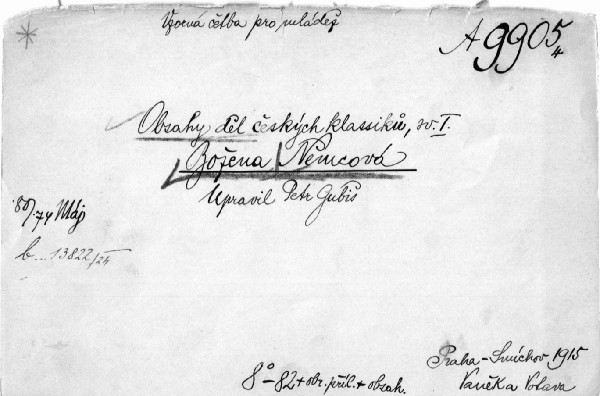 Vzorná četba pro mládež
A 9905/4
Obsahy děl českých klassiků, sv. I.
Božena Němcová
Upravil Petr Gubiš
74 Máj
b... 13822/24
8° - 82 + obr. příl. + obsah.
Praha-Smíchov 1915
Vaněk a Votava